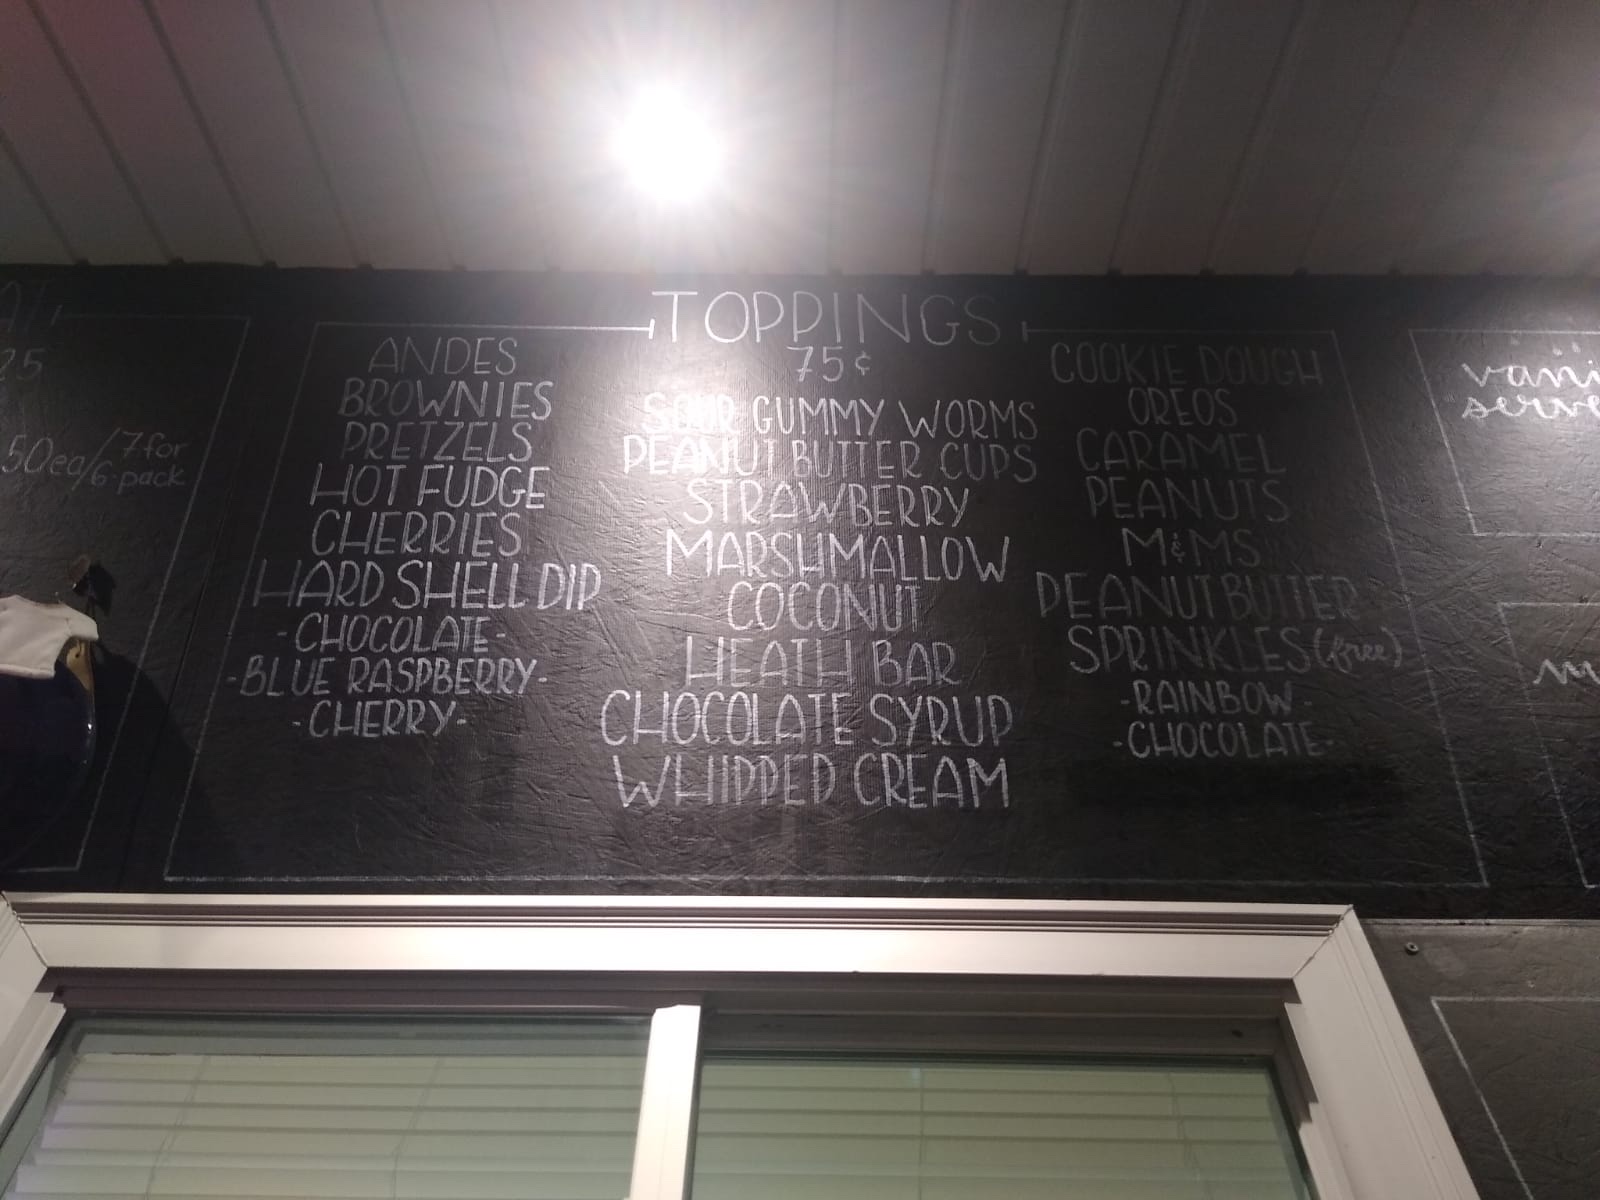 TOPPINGS
75¢
ANDES
BROWNIES
PRETZELS
HOT FUDGE
CHERRIES
HARD SHELL DIP
-CHOCOLATE-
-BLUE RASPBERRY-
-CHERRY-
SOUR GUMMY WORMS
PEANUT BUTTER CUPS
STRAWBERRY
MARSHMALLOW
COCONUT
HEATH BAR
CHOCOLATE SYRUP
WHIPPED CREAM
COOKIE DOUGH
OREOS
CARAMEL
PEANUTS
M&MS
PEANUT BUTTER
SPRINKLES (free)
-RAINBOW-
-CHOCOLATE-
25
50ea/7 for
6-pack
vani
serve